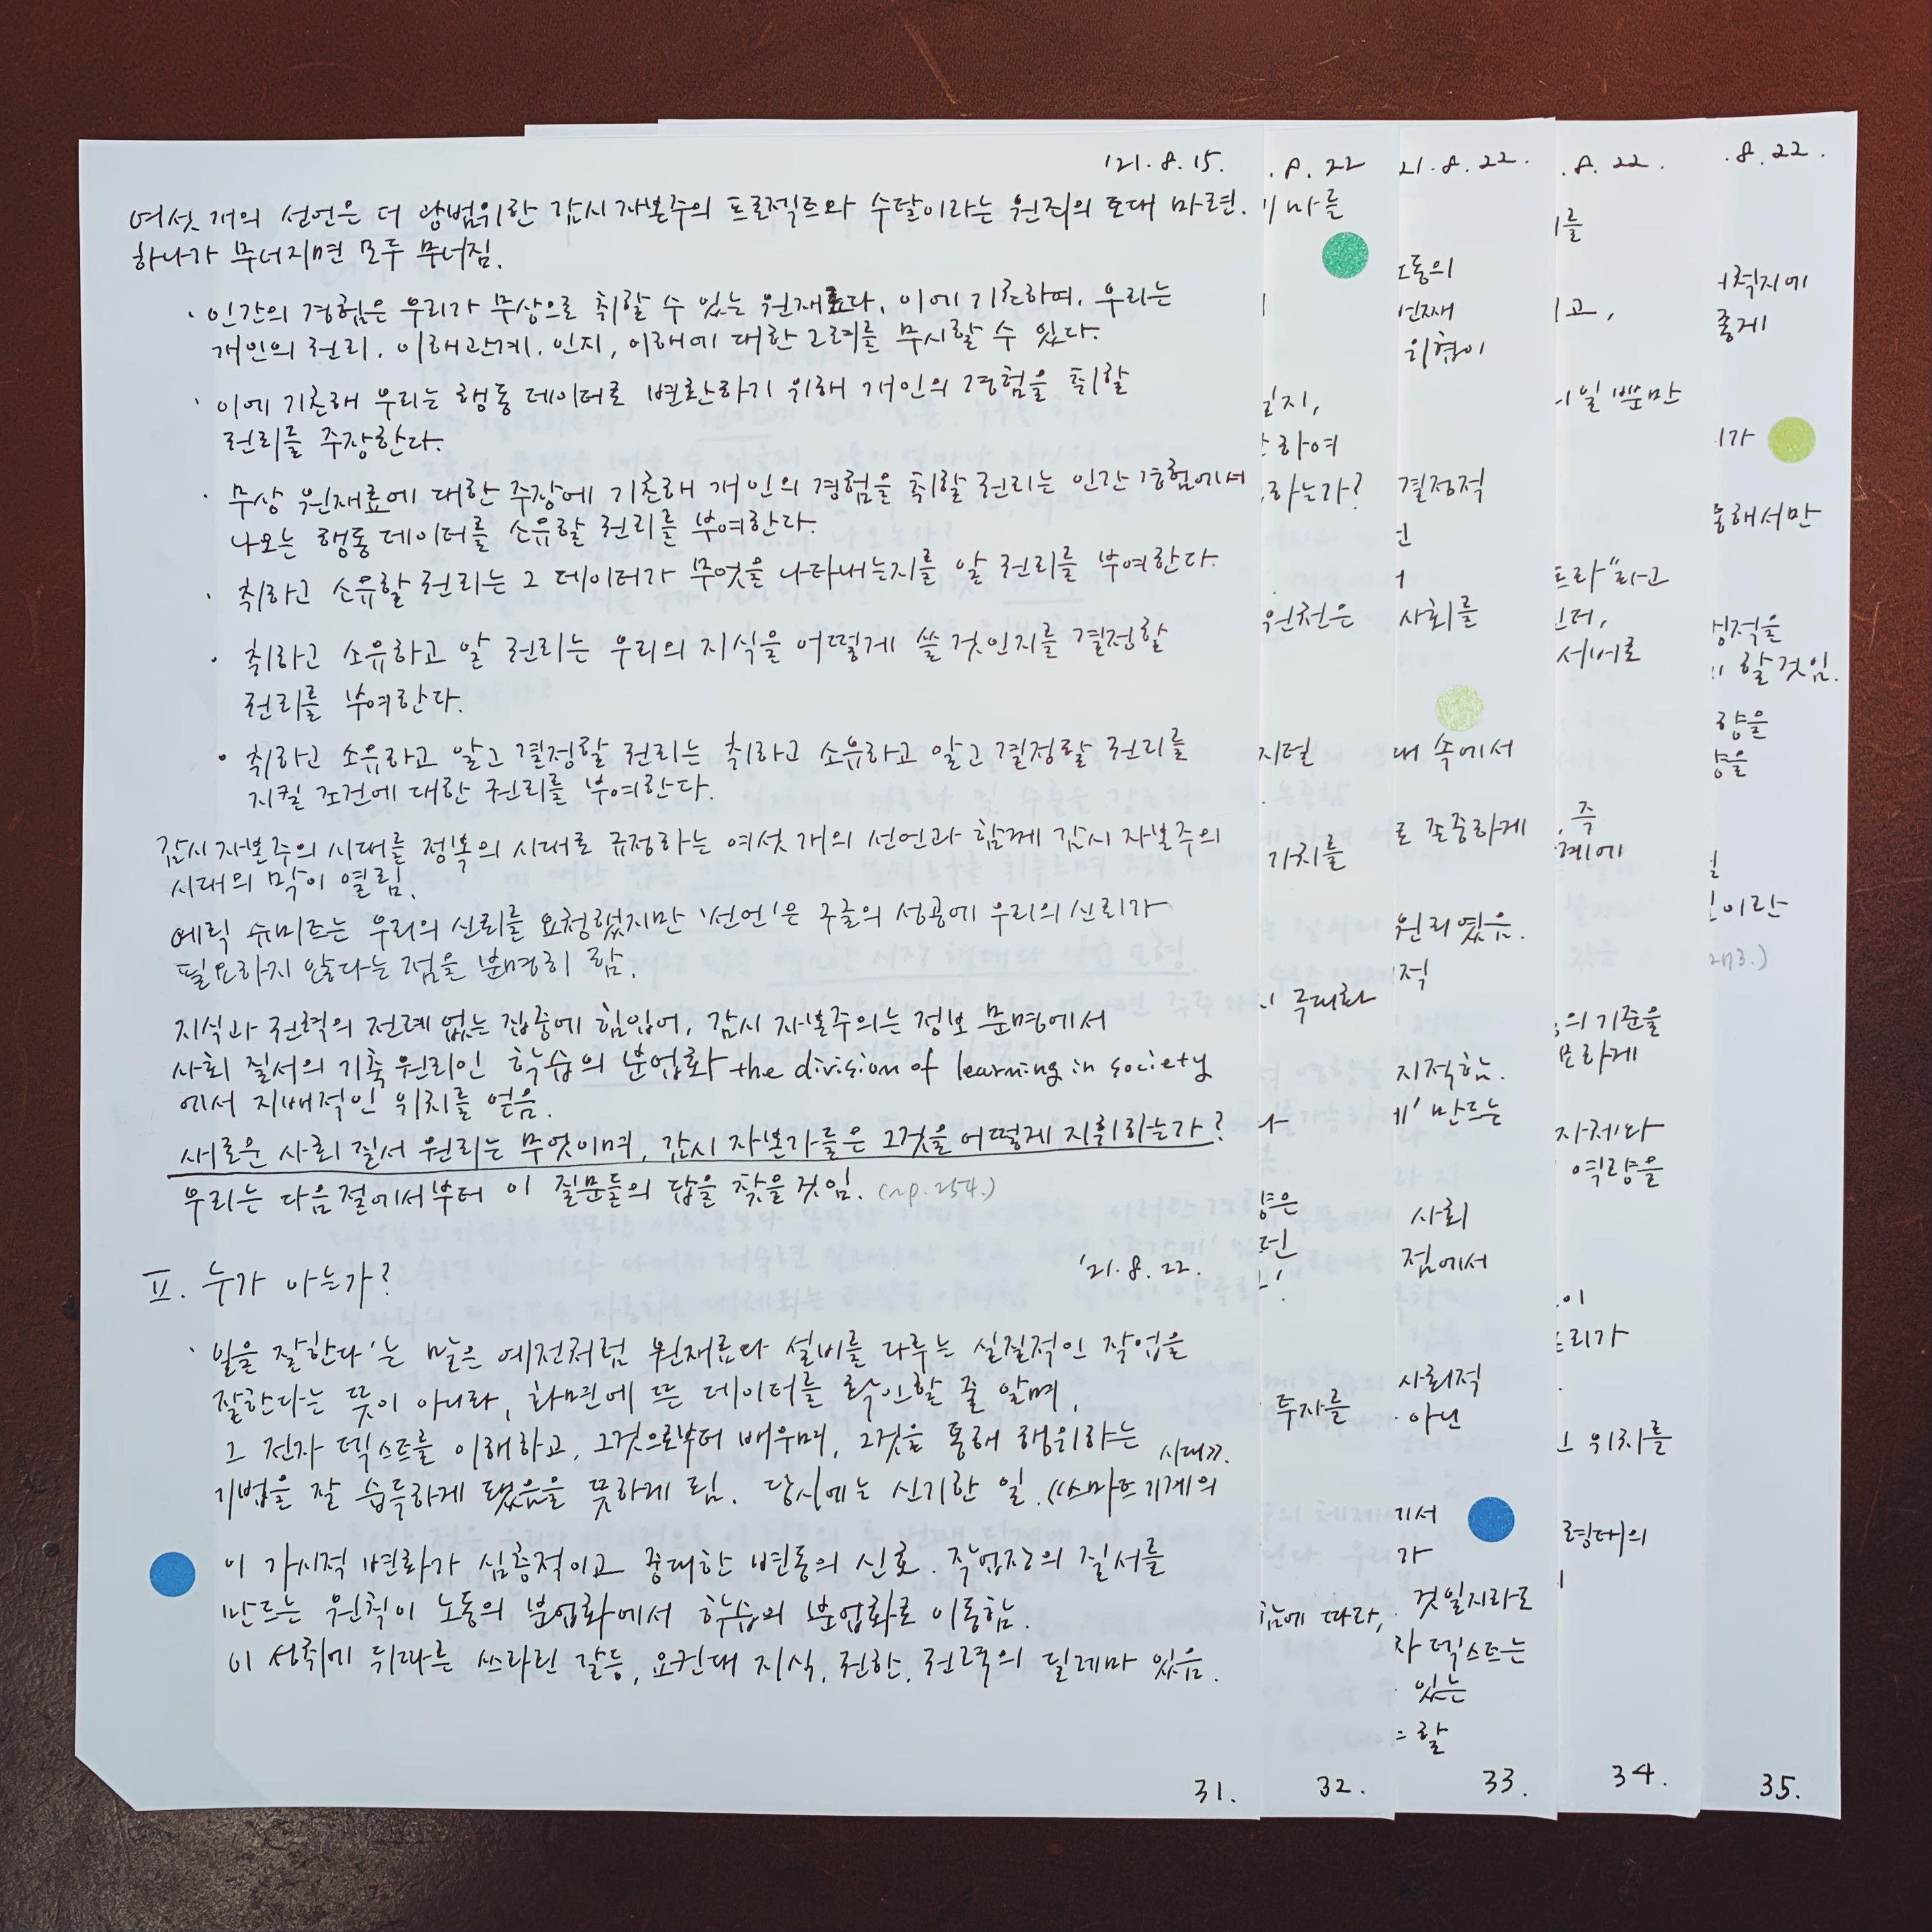 '21. 8. 15.
여섯 개의 선언은 더 광범위한 감시 자본주의 프로젝트와 수탈이라는 원죄의 토대 마련.
하나가 무너지면 모두 무너짐.
· 인간의 경험은 우리가 무상으로 취할 수 있는 원재료다. 이에 기초하여, 우리는
개인의 권리, 이해관계, 인지, 이해에 대한 고려를 무시할 수 있다.
· 이에 기초해 우리는 행동 데이터로 변환하기 위해 개인의 경험을 취할
권리를 주장한다.
· 무상 원재료에 대한 주장에 기초해 개인의 경험을 취할 권리는 인간 경험에서
나오는 행동 데이터를 소유할 권리를 부여한다.
· 취하고 소유할 권리는 그 데이터가 무엇을 나타내는지를 알 권리를 부여한다.
· 취하고 소유하고 알 권리는 우리의 지식을 어떻게 쓸 것인지를 결정할
권리를 부여한다.
· 취하고 소유하고 알고 결정할 권리는 취하고 소유하고 알고 결정할 권리를
지킬 조건에 대한 권리를 부여한다.
감시 자본주의 시대를 정복의 시대로 규정하는 여섯 개의 선언과 함께 감시 자본주의
시대의 막이 열림.
에릭 슈미트는 우리의 신뢰를 요청했지만 '선언'은 구글의 성공에 우리의 신뢰가
필요하지 않다는 점을 분명히 함.
지식과 권력의 전례 없는 집중에 힘입어, 감시 자본주의는 정보 문명에서
사회 질서의 기축 원리인 학습의 분업화 the division of learning in society
에서 지배적인 위치를 얻음.
새로운 사회 질서 원리는 무엇이며, 감시 자본가들은 그것을 어떻게 지휘하는가?
우리는 다음 절에서부터 이 질문들의 답을 찾을 것임. (~p.254.)
II. 누가 아는가?
'21. 8. 22.
'일을 잘한다'는 말은 예전처럼 원재료와 설비를 다루는 실질적인 작업을
잘한다는 뜻이 아니라, 화면에 뜬 데이터를 확인할 줄 알며,
그 전자 텍스트를 이해하고, 그것으로부터 배우며, 그것을 통해 행위하는
기법을 잘 습득하게 됐음을 뜻하게 됨. 당시에는 신기한 일. 《스마트 기계의
시대》.
이 가시적 변화가 심층적이고 중대한 변동의 신호. 작업장의 질서를
만드는 원칙이 노동의 분업화에서 학습의 분업화로 이동함.
이 성취에 뒤따른 쓰라린 갈등, 요컨대 지식, 권한, 권력의 딜레마 있음.
31.
. 8. 22
마를
하여
하는가?
원천은
가치를
극대화
투자를
따라,
32.
21. 8. 22.
위협이
결정적
사회를
속에서
존중하게
원리였음.
지적함.
만드는
사회
점에서
사회적
아닌
것일지라도
텍스트는
있는
할
33.
. 8. 22.
일 뿐만
서버로
즉
의 기준을
역량을
위치를
34.
. 8. 22.
할 것임.
273.)
35.